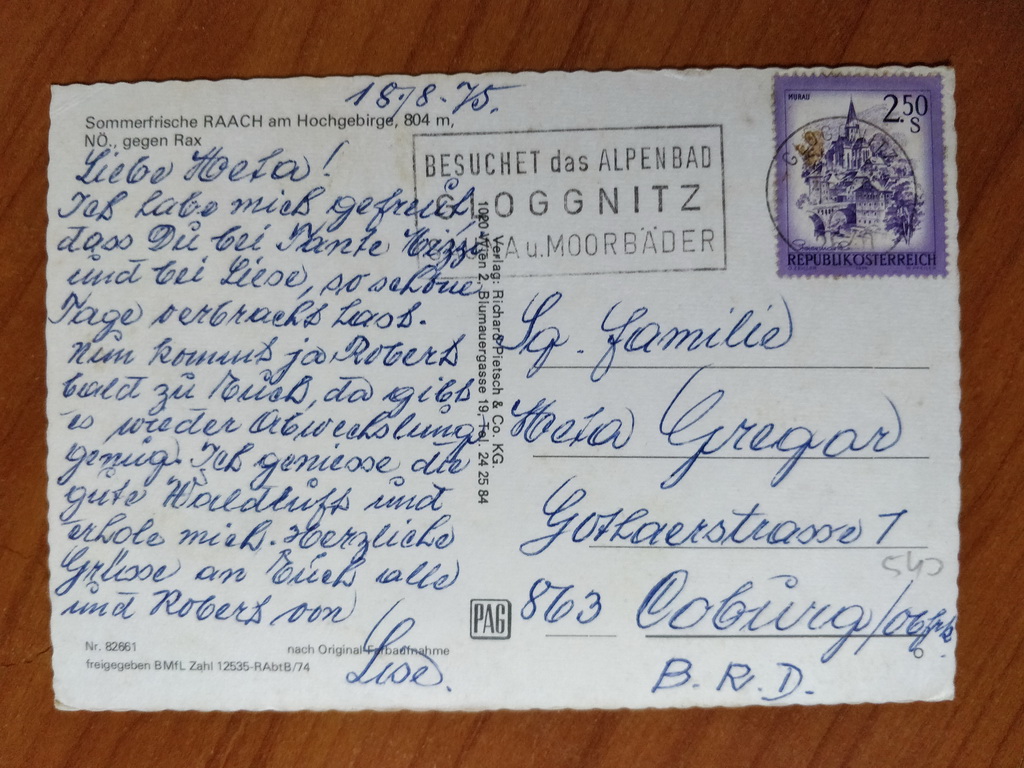 18/8-75.
Sommerfrische RAACH am Hochgebirge, 804 m,
NÖ., gegen Rax
Liebe Heta!
Ich habe mich gefreut
dass Du bei Tante Mizzi
und bei Liese, so schöne
Tage verbracht hast.
Nun kommt ja Robert
bald zu Euch, da gibts
es wieder Abwechslung
genug. Ich geniesse die
gute Waldluft und
erhole mich. Herzliche
Grüsse an Euch alle
und Robert von
Lise.
Nr. 82661
nach Original-Farbaufnahme
freigegeben BMfL Zahl 12535-RAbtB/74
Verlag: Richard Pietsch & Co. KG.
1020 Wien 2, Blumauergasse 19, Tel. 24 25 84
PAG
BESUCHET das ALPENBAD
GLOGGNITZ
u. MOORBÄDER
MURAU
2.50
S
GLOGGNITZ
REPUBLIK ÖSTERREICH
Sg. Familie
Heta Gregor
Gothaerstrasse 7
540
863 Coburg/Obfrk.
B.R.D.